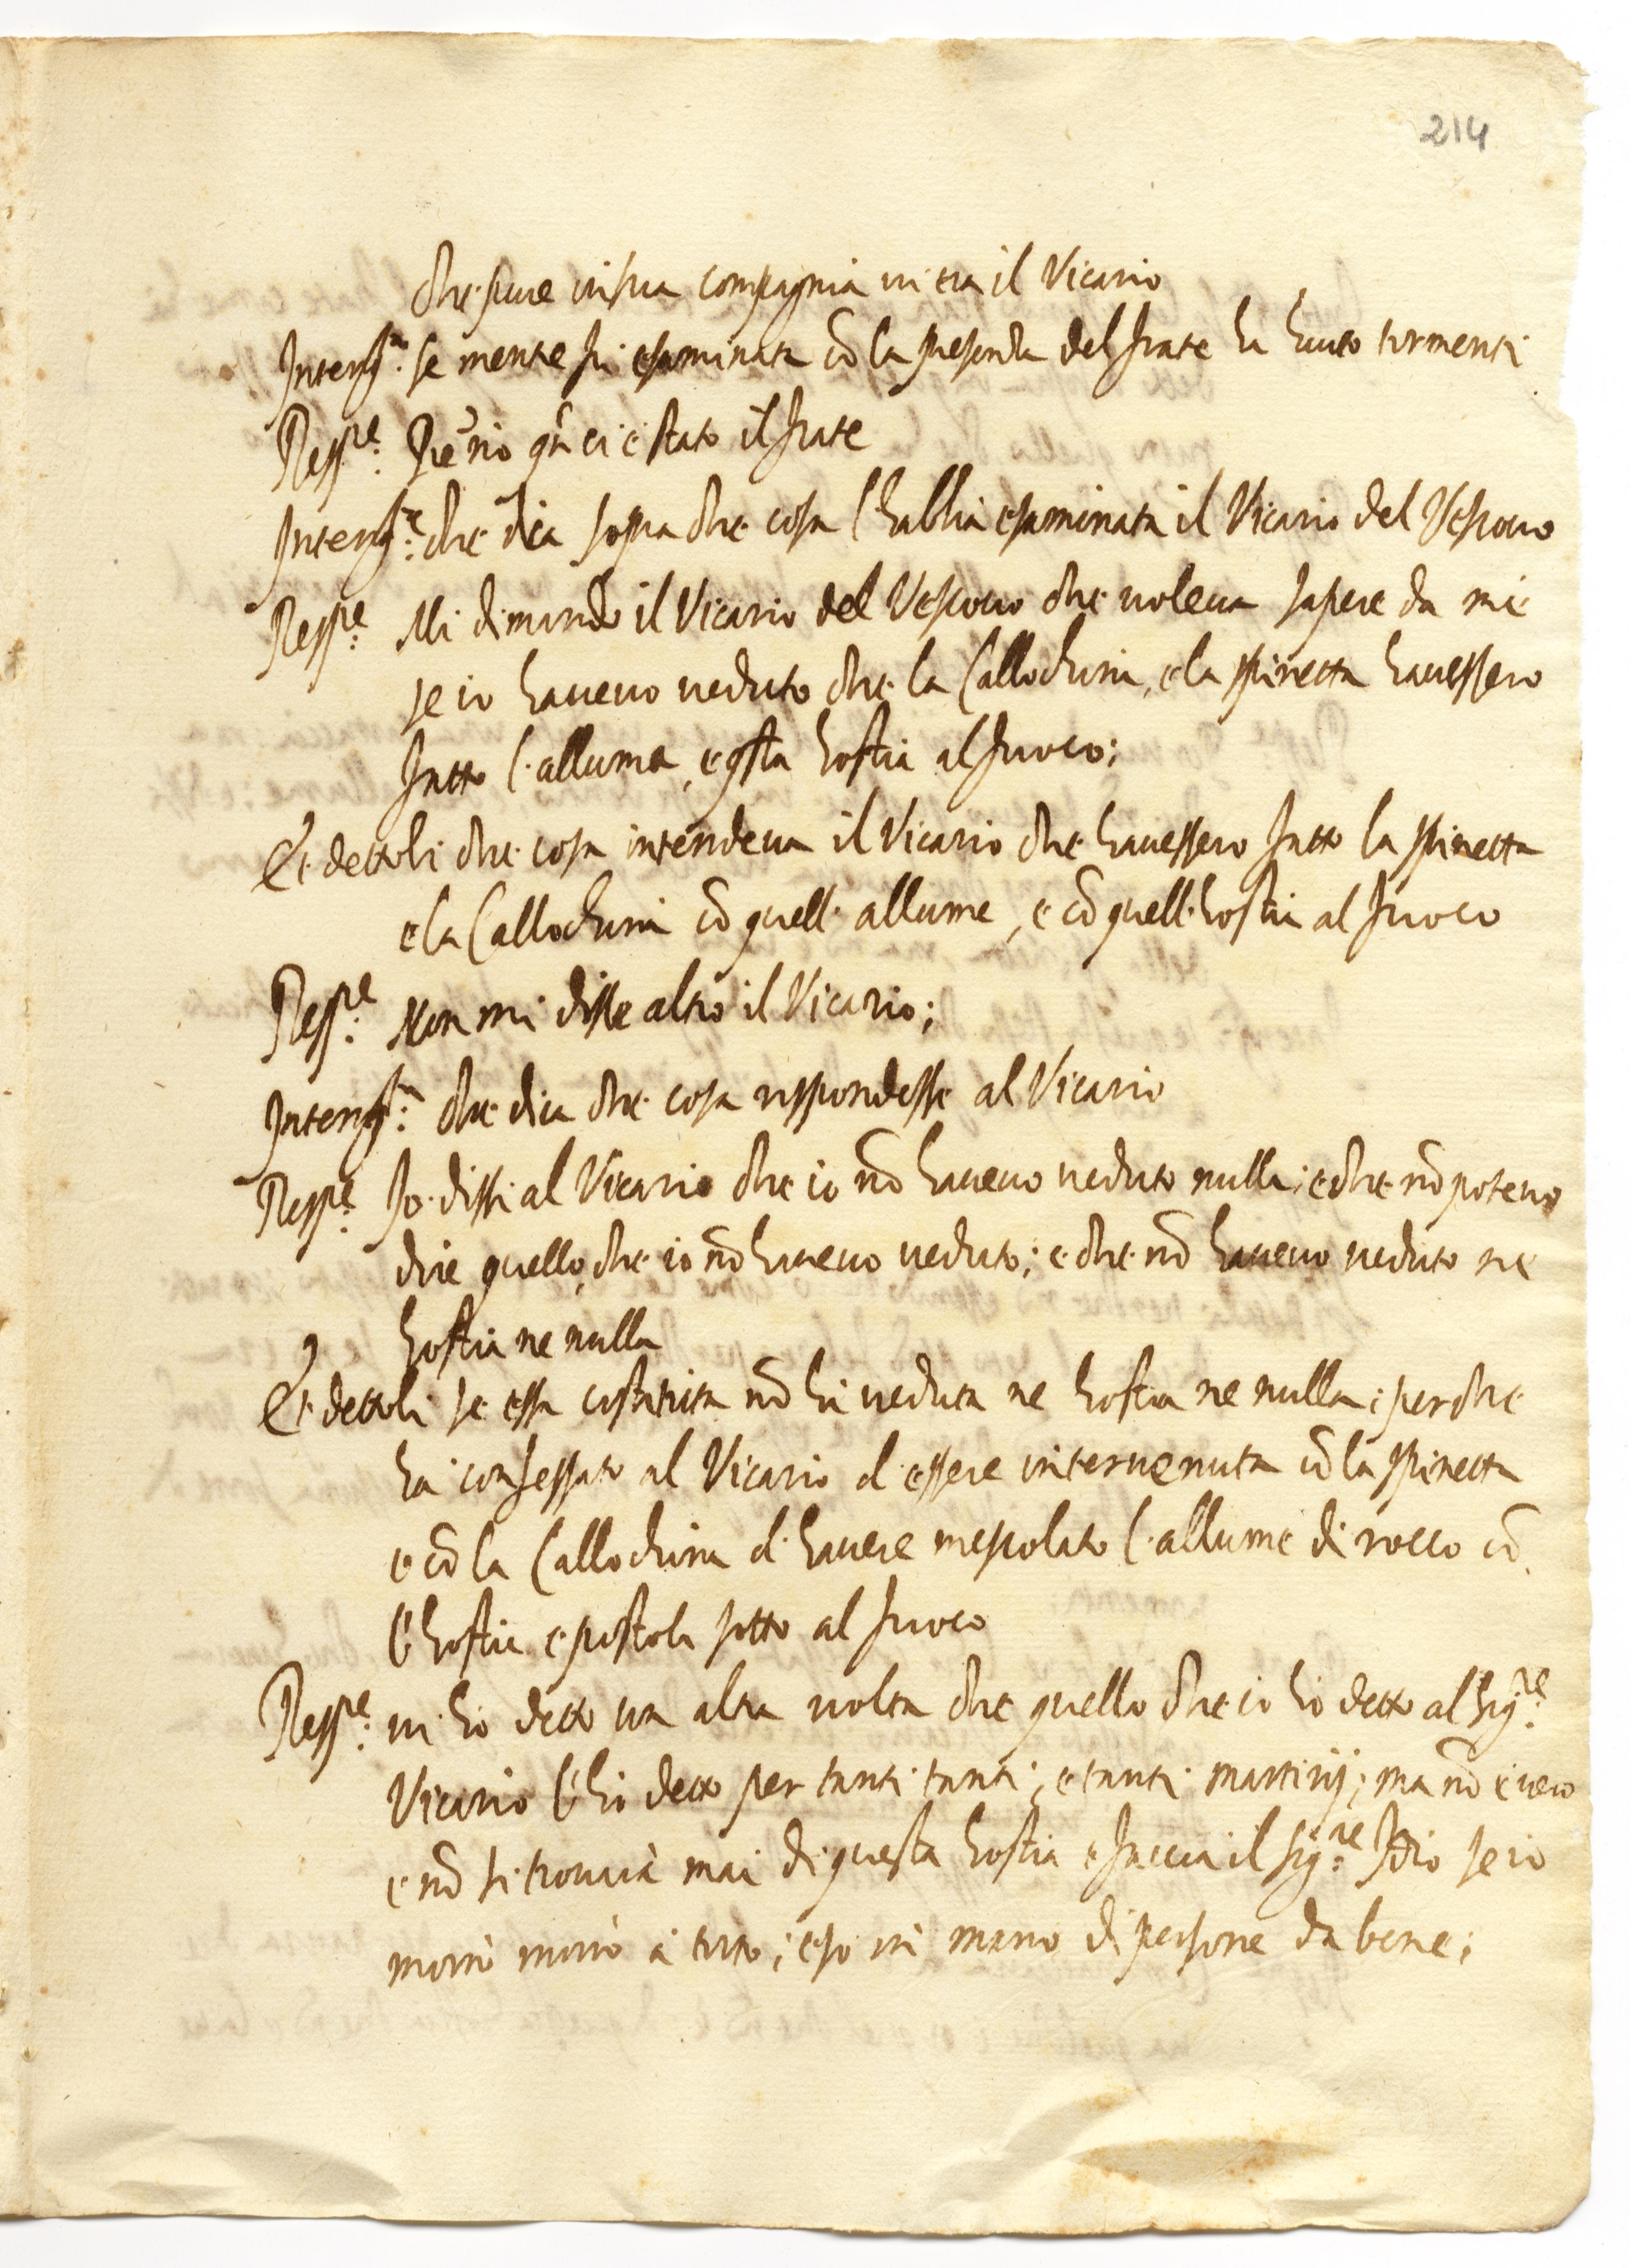 214
che pure in sua compagnia vi era il Vicario
Interrog.ta se mentre fu esaminata cõ la presenza del frate ha hauto tormenti
Resp.e Sig.re nò qñ ci è stato il frate
Interrog.ta che dica sopra che cosa l'habbia esaminata il Vicario del Vescouo
Resp.e Mi dimandò il Vicario del Vescouo che uoleua sapere da me
se io haueuo ueduto che la Callochina, e la spinetta hauessero
fatto l'allume, e qsta hostia al fuoco;
Et dettoli che cosa intendeua il Vicario che hauessero fatto la spinetta
e la Callochina cõ quell'allume, e cõ quell'hostia al fuoco
Resp.e Non mi disse altro il Vicario;
Interrog.ta che dica che cosa rispondesse al Vicario
Resp.e Io dissi al Vicario che io nõ haueuo ueduto nulla; e che nõ poteuo
dire quello, che io nõ haueuo ueduto; e che nõ haueuo ueduto ne
hostia ne nulla
Et dettoli se essa costituta nõ hà ueduta ne hostia ne nulla; perche
hà confessato al Vicario d'essere interuenuta cõ la spinetta
e cõ la Callochina d'hauere mescolato l'allume di rocco cõ
l'hostia e postola sotto al fuoco
Resp.e ui hò detto un altra uolta che quello che io hò detto al Sig.re
Vicario l'hò detto per tanti tanti, e tanti martirij; ma nõ è uero
e nõ si trouarà mai di questa hostia e faccia il Sig.re Idio se io
morirò morirò à torto; e so in mano di persone da bene;